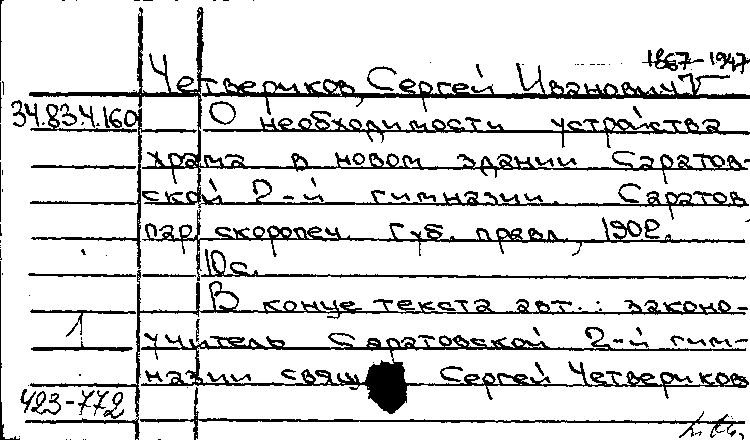 1867-1947
Четвериков, Сергей Иванович
34.83.4.160 О необходимости устройства
храма в новом здании Саратов-
ской 2-й гимназии. Саратов
пар. скоропеч. Губ. правл., 1902.
10 с.
В конце текста авт.: законо-
1 учитель Саратовской 2-й гим-
назии свящ. Сергей Четвериков
423-772